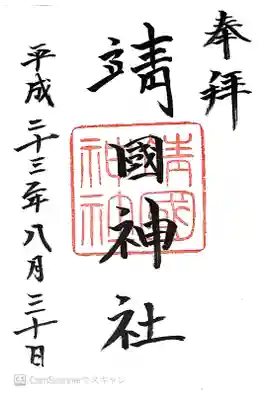 奉拝
靖國神社
靖國神社
平成二十三年八月三十日
CamScannerでスキャン